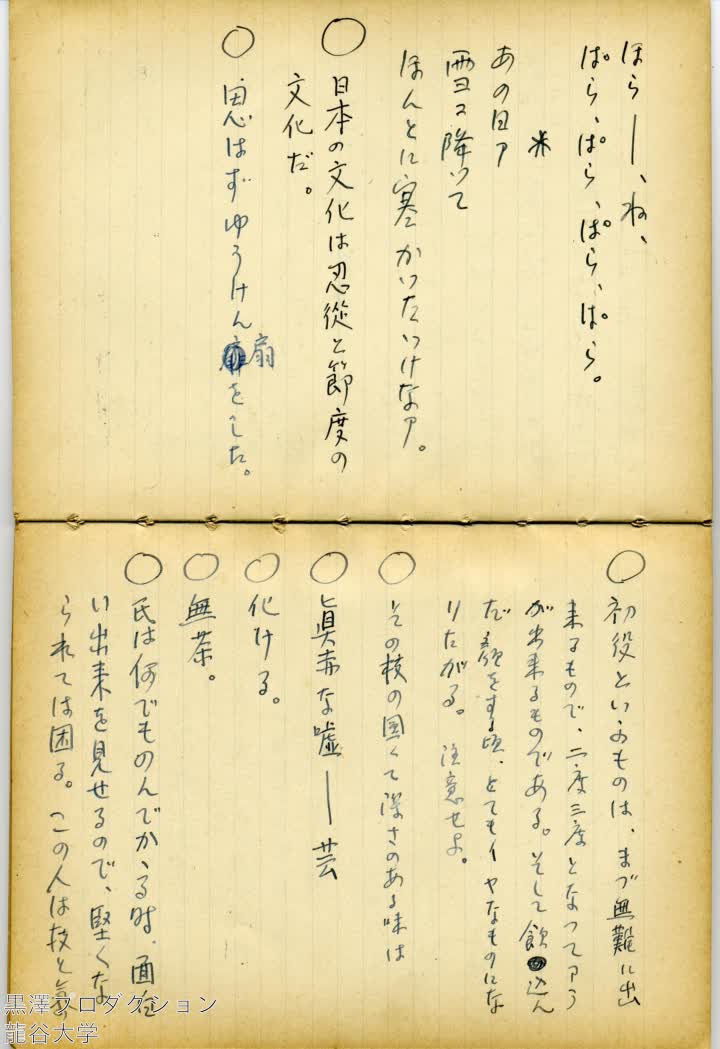 ほらー、ね、
ぱら、ぱら、ぱら、ぱら。
米
あの日ァ
雪コ降って
ほんとに寒かったっけなァ。
○ 日本の文化は忍従と節度の
文化だ。
○ 思はずゆうけん扇をした。
○ 初役といふものは、まづ無難に出
来るもので、二度三度となつてアラ
が出来るものである。そして飲込ん
だ顔をする頃、とてもイヤなものにな
りたがる。 注意せよ。
○ その枝の固くて深さのある味は
○ 眞赤な嘘ー芸
○ 化ける。
○ 無茶。
○ 氏は何でものんでかゝる時、面白
い出来を見せるので、堅くな
られては困る。この人は技と気
黒澤プロダクション
龍谷大学